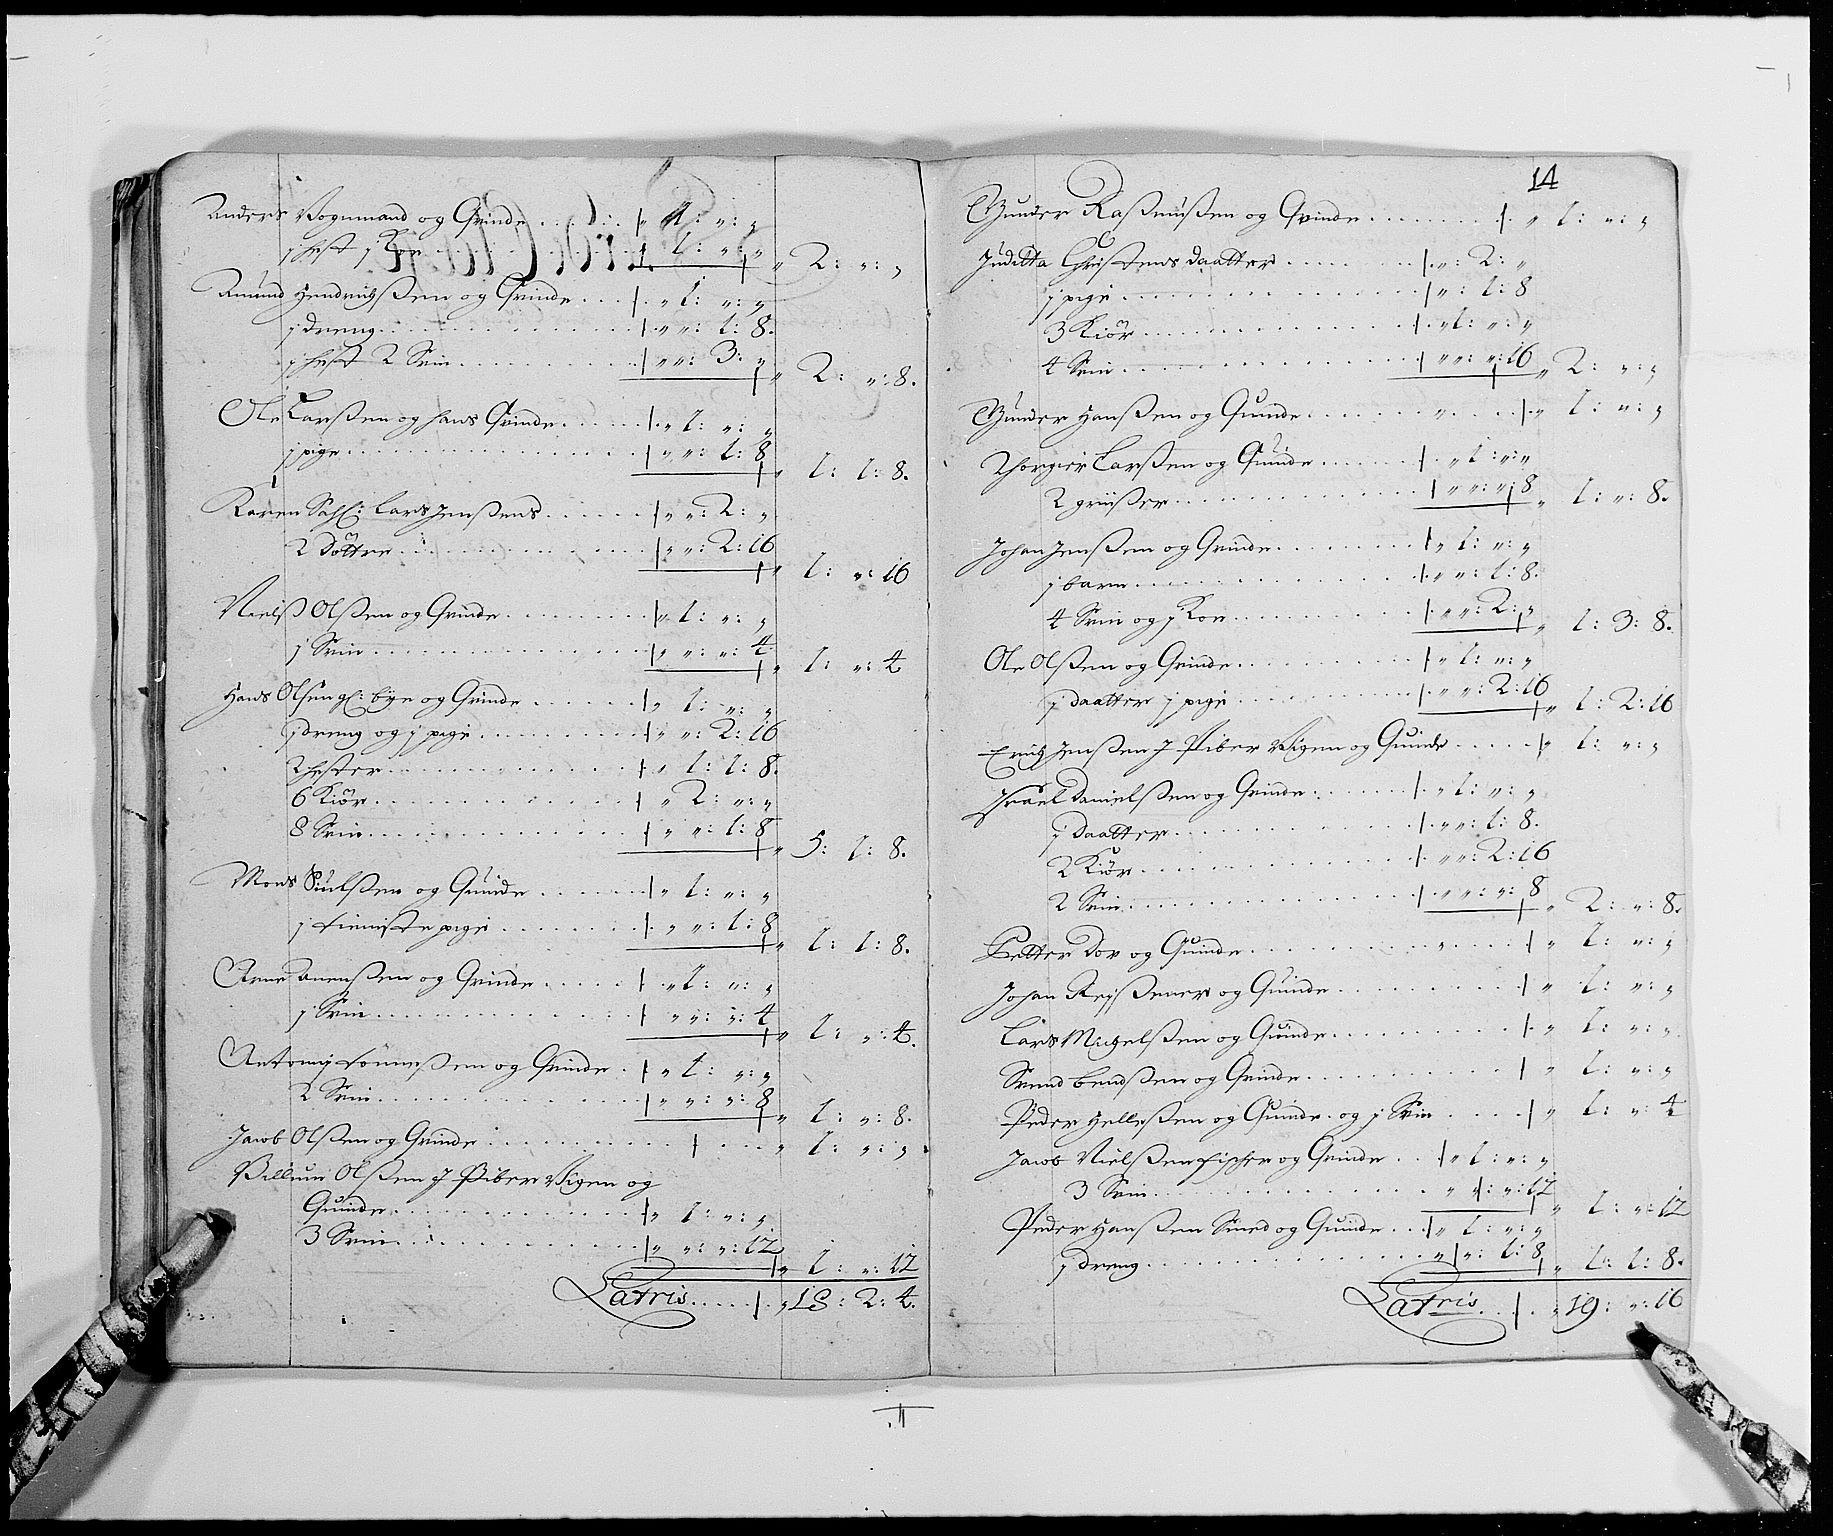 Anders Vognmand og Qvinde . . . . . „ 1: „: „
j hest j Koe . . . . . „ 1: „: „ „ 2: „: „
Amund Hendrichßen og Qvinde . . . „ 1: „: „
j dreng . . . . . „ „: 1: 8.
j hest 2 Svin . . . . . „ „: 3: „ „ 2: „: 8.
Ole Larßen og hans Qvinde . . . . . „ 1: „: „
j pige . . . . . „ „: 1: 8 „ 1: 1: 8.
Karen Sahl: Lars Jenßens . . . . . „ „: 2: „
2 Döttre . . . . . „ „: 2: 16 „ 1: „: 16
Nielß Olßen og Qvinde . . . . . „ 1: „: „
j Svin . . . . . „ „: „: 4 „ 1: „: 4
Hans Olsen gl: bye og Qvinde . . . . . „ 1: „: „
j dreng og j pige . . . . . „ „: 2: 16
2 hester . . . . . „ 1: 1: 8.
6 Kiör . . . . . „ 2: „: „
8 Svin . . . . . „ „: 1: 8 „ 5: 1: 8.
Mons Poulßen og Quinde . . . . . „ 1: „: „
j tieniste pige . . . . . „ „: 1: 8 „ 1: 1: 8.
Arne Anenßen og Qvinde . . . . . „ 1: „: „
j Svin . . . . . „ „: „: 4 „ 1: „: 4.
Antonij Tönneßen og Qvinde . „ 1: „: „
2 Svin . . . . . „ „: „: 8 „ 1: „: 8.
Jacob Olßen og Qvinde . . . . . „ 1: „: „
Villum Olßen J Piber Vigen og
Quinde . . . . . „ 1: „: „
3 Svin . . . . . „ „: „: 12 „ 1: „: 12
Latris . . . . . „ 18: 2: 4.
14
Gunder Raßmußen og Qvinde . . . . . „ 1: „: „
Juditta Christens daatter . . . . . „: 2: „
j pige . . . . . „: 1: 8
3 Kiör . . . . . „ 1: „: „
4 Svin . . . . . „ „: „: 16 „ 2: „: „
Gunder Hanßen og Quinde . . . . . „ 1: „: „
Thorgier Larßen og Quinde . . . . . „ 1: „: „
2 griißer . . . . . „ „: „: 8 „ 1: „: 8.
Johan Jenßen og Qvinde . . . . . „ 1: „: „
j barn . . . . . „ „: 1: 8.
4 Svin og j Koe . . . . . „ „: 2: „ „ 1: 3: 8.
Ole Olßen og Qvinde . . . . . „ 1: „: „
j daatter j pige . . . . . „ „: 2: 16 „ 1: 2: 16
Erich Jenßen J Piber Vigen og Quinde . . . . . „ 1: „: „
Israel Danielßen og Qvinde . . . . . „ 1: „: „
j daatter . . . . . „ „: 1: 8.
2 Kiör . . . . . „ „: 2: 16
2 Svin . . . . . „ „: „: 8 „ 2: „: 8.
Petter Dov og Quinde . . . . . „ 1: „: „
Johan Rejßener og Quinde . . . . . „ 1: „: „
Lars Michelßen og Quinde . . . . . „ 1: „: „
Svend bendßen og Qvinde . . . . . „ 1: „: „
Peder Helleßen og Quinde og j Svin . . . . „ 1: „: 4
Jacob Nielßen fischer og Qvinde . . „ 1: „: „
3 Svin . . . . . „ „: „: 12 „ 1: „: 12
Peder Hanßen Smed og Quinde . . „ 1: „: „
j dreng . . . . . „ „: 1: 8 „ 1: 1: 8.
Latris . . . „ 19: „: 16